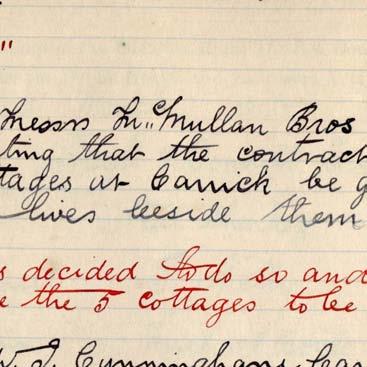 "
Messrs McMullan Bros
ting that the contract
tages at Carrick be g
lives beside them
s decided to do so and
e the 5 cottages to be
W. J. Cunningham